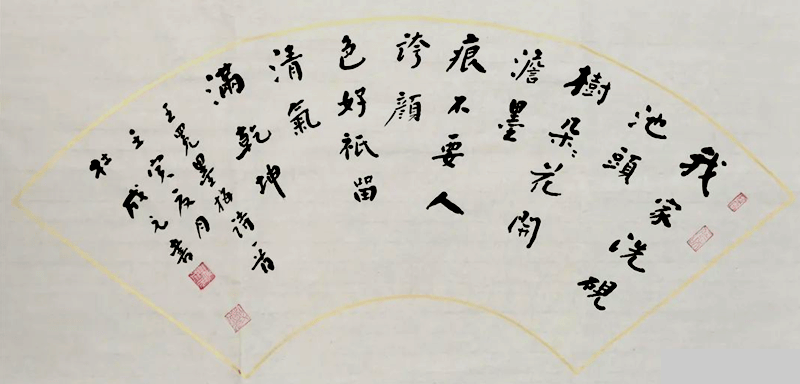 我家洗硯
池頭
樹朵〻花開
澹墨
痕不要人
誇顏
色好祇留
清氣
滿乾坤
王冕墨梅詩一首
壬寅夏月
杜成元書